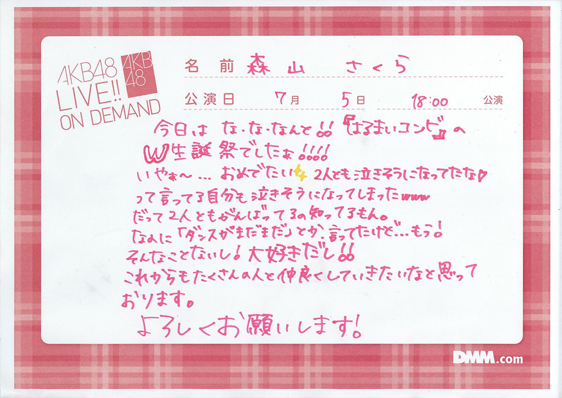 AKB48
LIVE!!
ON DEMAND
AKB
48
名前 森山 さくら
公演日 7月 5日 18:00 公演
今日は な・な・なんと!! 『はるまいコンビ』の
W生誕祭でしたぁ!!!!
いやぁ〜... おめでたい⚡ 2人とも泣きそうになってたな♡
って言ってる自分も泣きそうになってしまったwww
だって2人ともがんばってるの知ってるもん。
なのに「ダンスがまだまだ」とか言ってたけど...もう!
そんなことないし! 大好きだし!!
これからもたくさんの人と仲良くしていきたいなと思って
おります。
よろしくお願いします!
DMM.com